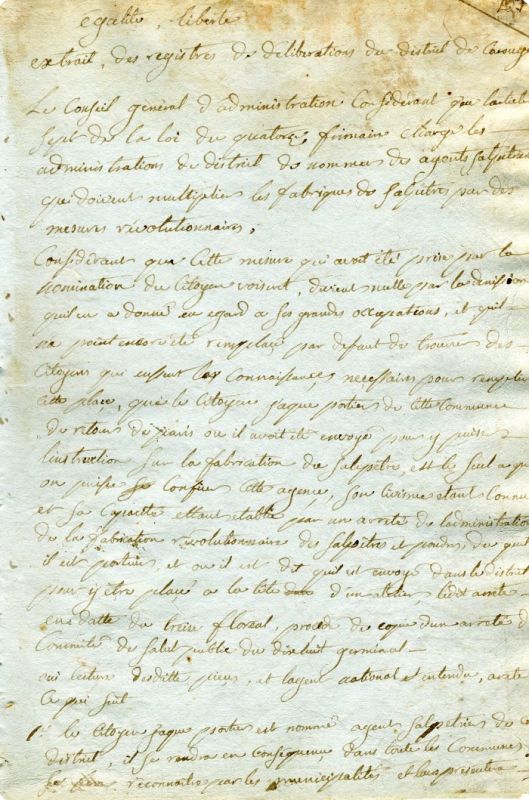 égalité, liberté
extrait, des registres de déliberations du district de Carouge
Le Conseil général d'administration Considérant que larticle
sept de la loi du quatorze frimaire charge les
administrations de district de nommer des agents salpetriers
qui doivent multiplier les fabriques de salpetres par des
mesures révolutionnaires,
Considérant que Cette mesure qui avoit été prise par la
nomination du Citoyen voisin, devient nulle par la démission
qu'il en a donné en egard a ses grandes occupations, et quil
na point encore été remplacé par defaut de trouver des
Citoyens qui eussent les connaissances necessaires pour remplir
Cette place, que le Citoyen jaque portier de Cette Commune
de retour de paris ou il avoit été envoyé pour y puiser
linstruction sur la fabrication du salpetre, est le seul a qui
on puisse Confier Cette agence, son Civisme etant Connu
et sa Capacité etant etablie par un arreté de ladministration
de la fabrication révolutionnaire des salpetres et poudres, du quel
il est porteur, et ou il est dit quil est envoyé dans le district
pour y être placé a la tête d'un atelier, ledit arreté
en datte du treize floreal, procede de Copie d'un arreté du
Committé de salut public du dixhuit germinal
oui lecture desdittes pieces, et lagent national entendu, arrete
Ce qui suit
1° le Citoyen jaque portier est nommé agent salpetrier de ce
district, il se rendra en Conséquence dans toute les Communes
se fera reconnaitre par les municipalités et leur presentera